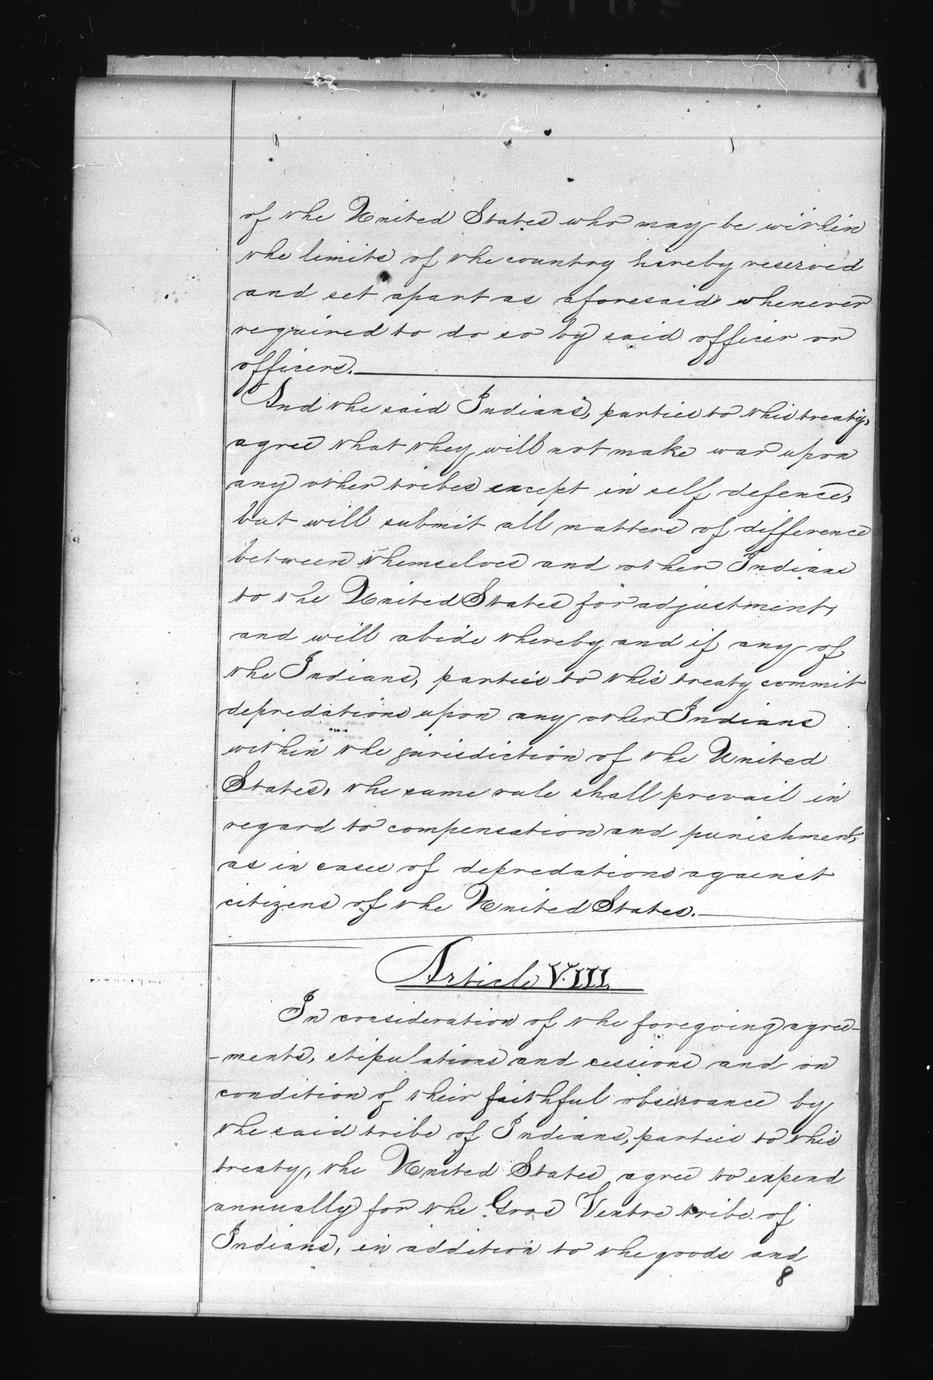 of the United States who may be within
the limits of the country hereby reserved
and set apart as aforesaid whenever
required to do so by said officer or
officers.
And the said Indians, parties to this treaty,
agree that they will not make war upon
any other tribes except in self defence,
but will submit all matters of difference
between themselves and other Indians
to the United States for adjustment,
and will abide thereby and if any of
the Indians, parties to this treaty commit
depredations upon any other Indians
within the jurisdiction of the United
States, the same rule shall prevail in
regard to compensation and punishment,
as in cases of depredations against
citizens of the United States.
Article VIII.
In consideration of the foregoing agree-
-ments, stipulations and cessions and on
condition of their faithful observance by
the said tribe of Indians, parties to this
treaty, the United States agree to expend
annually for the Gros Ventre tribe of
Indians, in addition to the goods and
8